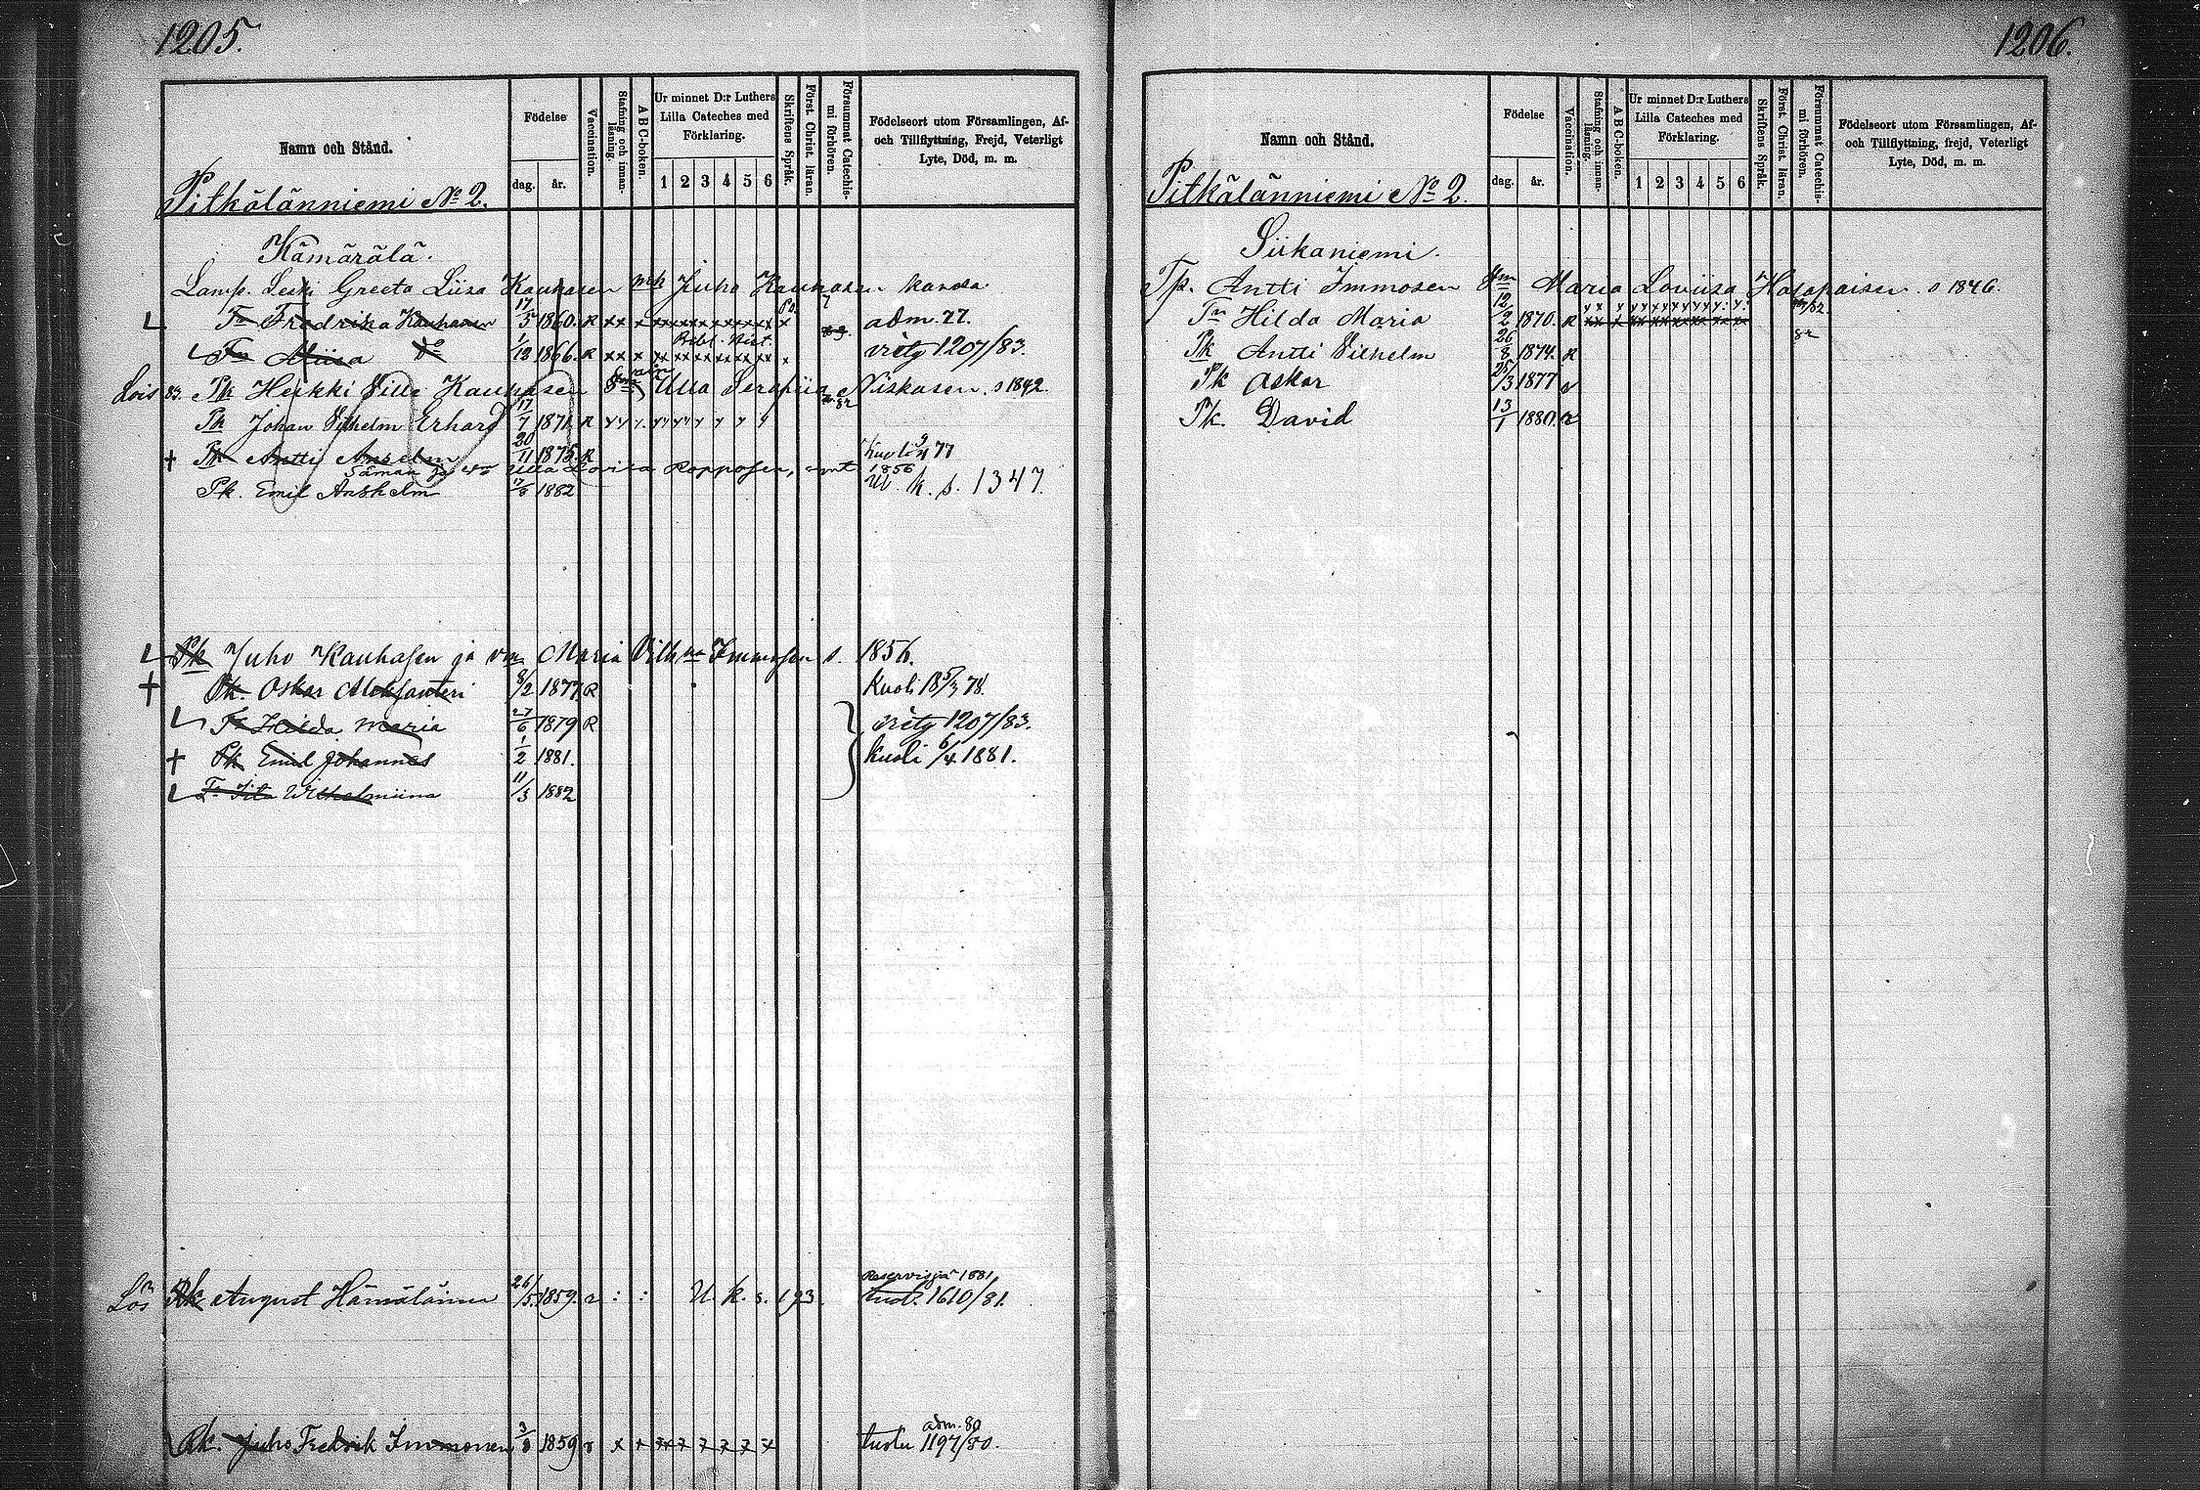 1205.
Namn och Stånd.
Födelse
dag.
år.
Vaccination.
Stafning och innan-läsning.
A B C-boken.
Ur minnet D:r Luthers Lilla Cateches med Förklaring.
1 2 3 4 5 6
Skriftens Språk.
Först. Christ. läran.
Försummat Catechis-mi förhören.
Födelseort utom Församlingen, Af-
och Tillflyttning, Frejd, Veterligt
Lyte, Död, m. m.
Pitkälänniemi No 2.
Kämärälä.
Lamp. Leski Greeta Liisa Kauhasen Juho Kauhasen kanssa
Tr Fredrika Kauhanen 17/5 1860. R xx x xxxxxxxxxxx x adm. 77.
Bibl. Hist.
Tr Miisa Do 1/12 1866. R xx x xx xx xx xx xx xx x 1207/83.
Lois 83. Pk Heikki Ville Kauhasen Ulla Serafiia Niskasen s 1842
Pk Johan Vilhelm Erhard 17/7 1871. R
+ Pk Antti Anselm 20/11 1875. R Kuoli 77
Saman ja Ulla Lovisa Ropposen, 1856
Pk. Emil Anshelm 17/8 1882 Ut k. s. 1347.
Pk Juho Kauhasen ja vm Maria Vilh na Immosen s. 1856.
+ Pk. Oskar Aleksanteri 8/2 1877. R Kuoli 18 5/3 78.
Tr Hilda Maria 27/6 1879 R 1207/83.
+ Pk Emil Johannes 1/2 1881. Kuoli 6/4 1881.
Tr Wilhelmiina 11/3 1882
Reservissä 1881
August Hämäläinen 26/5 1859. U. k. s. 193. tuol. 1610/81.
adm. 80
Rk. Juho Fredrik Immonen 3/8 1859 tuolu 1197/80.
1206.
Namn och Stånd.
Födelse
dag.
år.
Vaccination.
Stafning och innan-läsning.
A B C-boken.
Ur minnet D:r Luthers Lilla Cateches med Förklaring.
1 2 3 4 5 6
Skriftens Språk.
Först. Christ. läran.
Försummat Catechis-mi förhören.
Födelseort utom Församlingen, Af-
och Tillflyttning, frejd, Veterligt
Lyte, Död, m. m.
Pitkälänniemi No 2.
Siikaniemi.
Tp. Antti Immosen Vm Maria Loviisa Halapaisen s 1846.
Tr Hilda Maria 12/2 1870. R
Pk Antti Vilhelm 26/8 1874. R 82
Pk Oskar 25/3 1877
Pk. David 13/1 1880. R